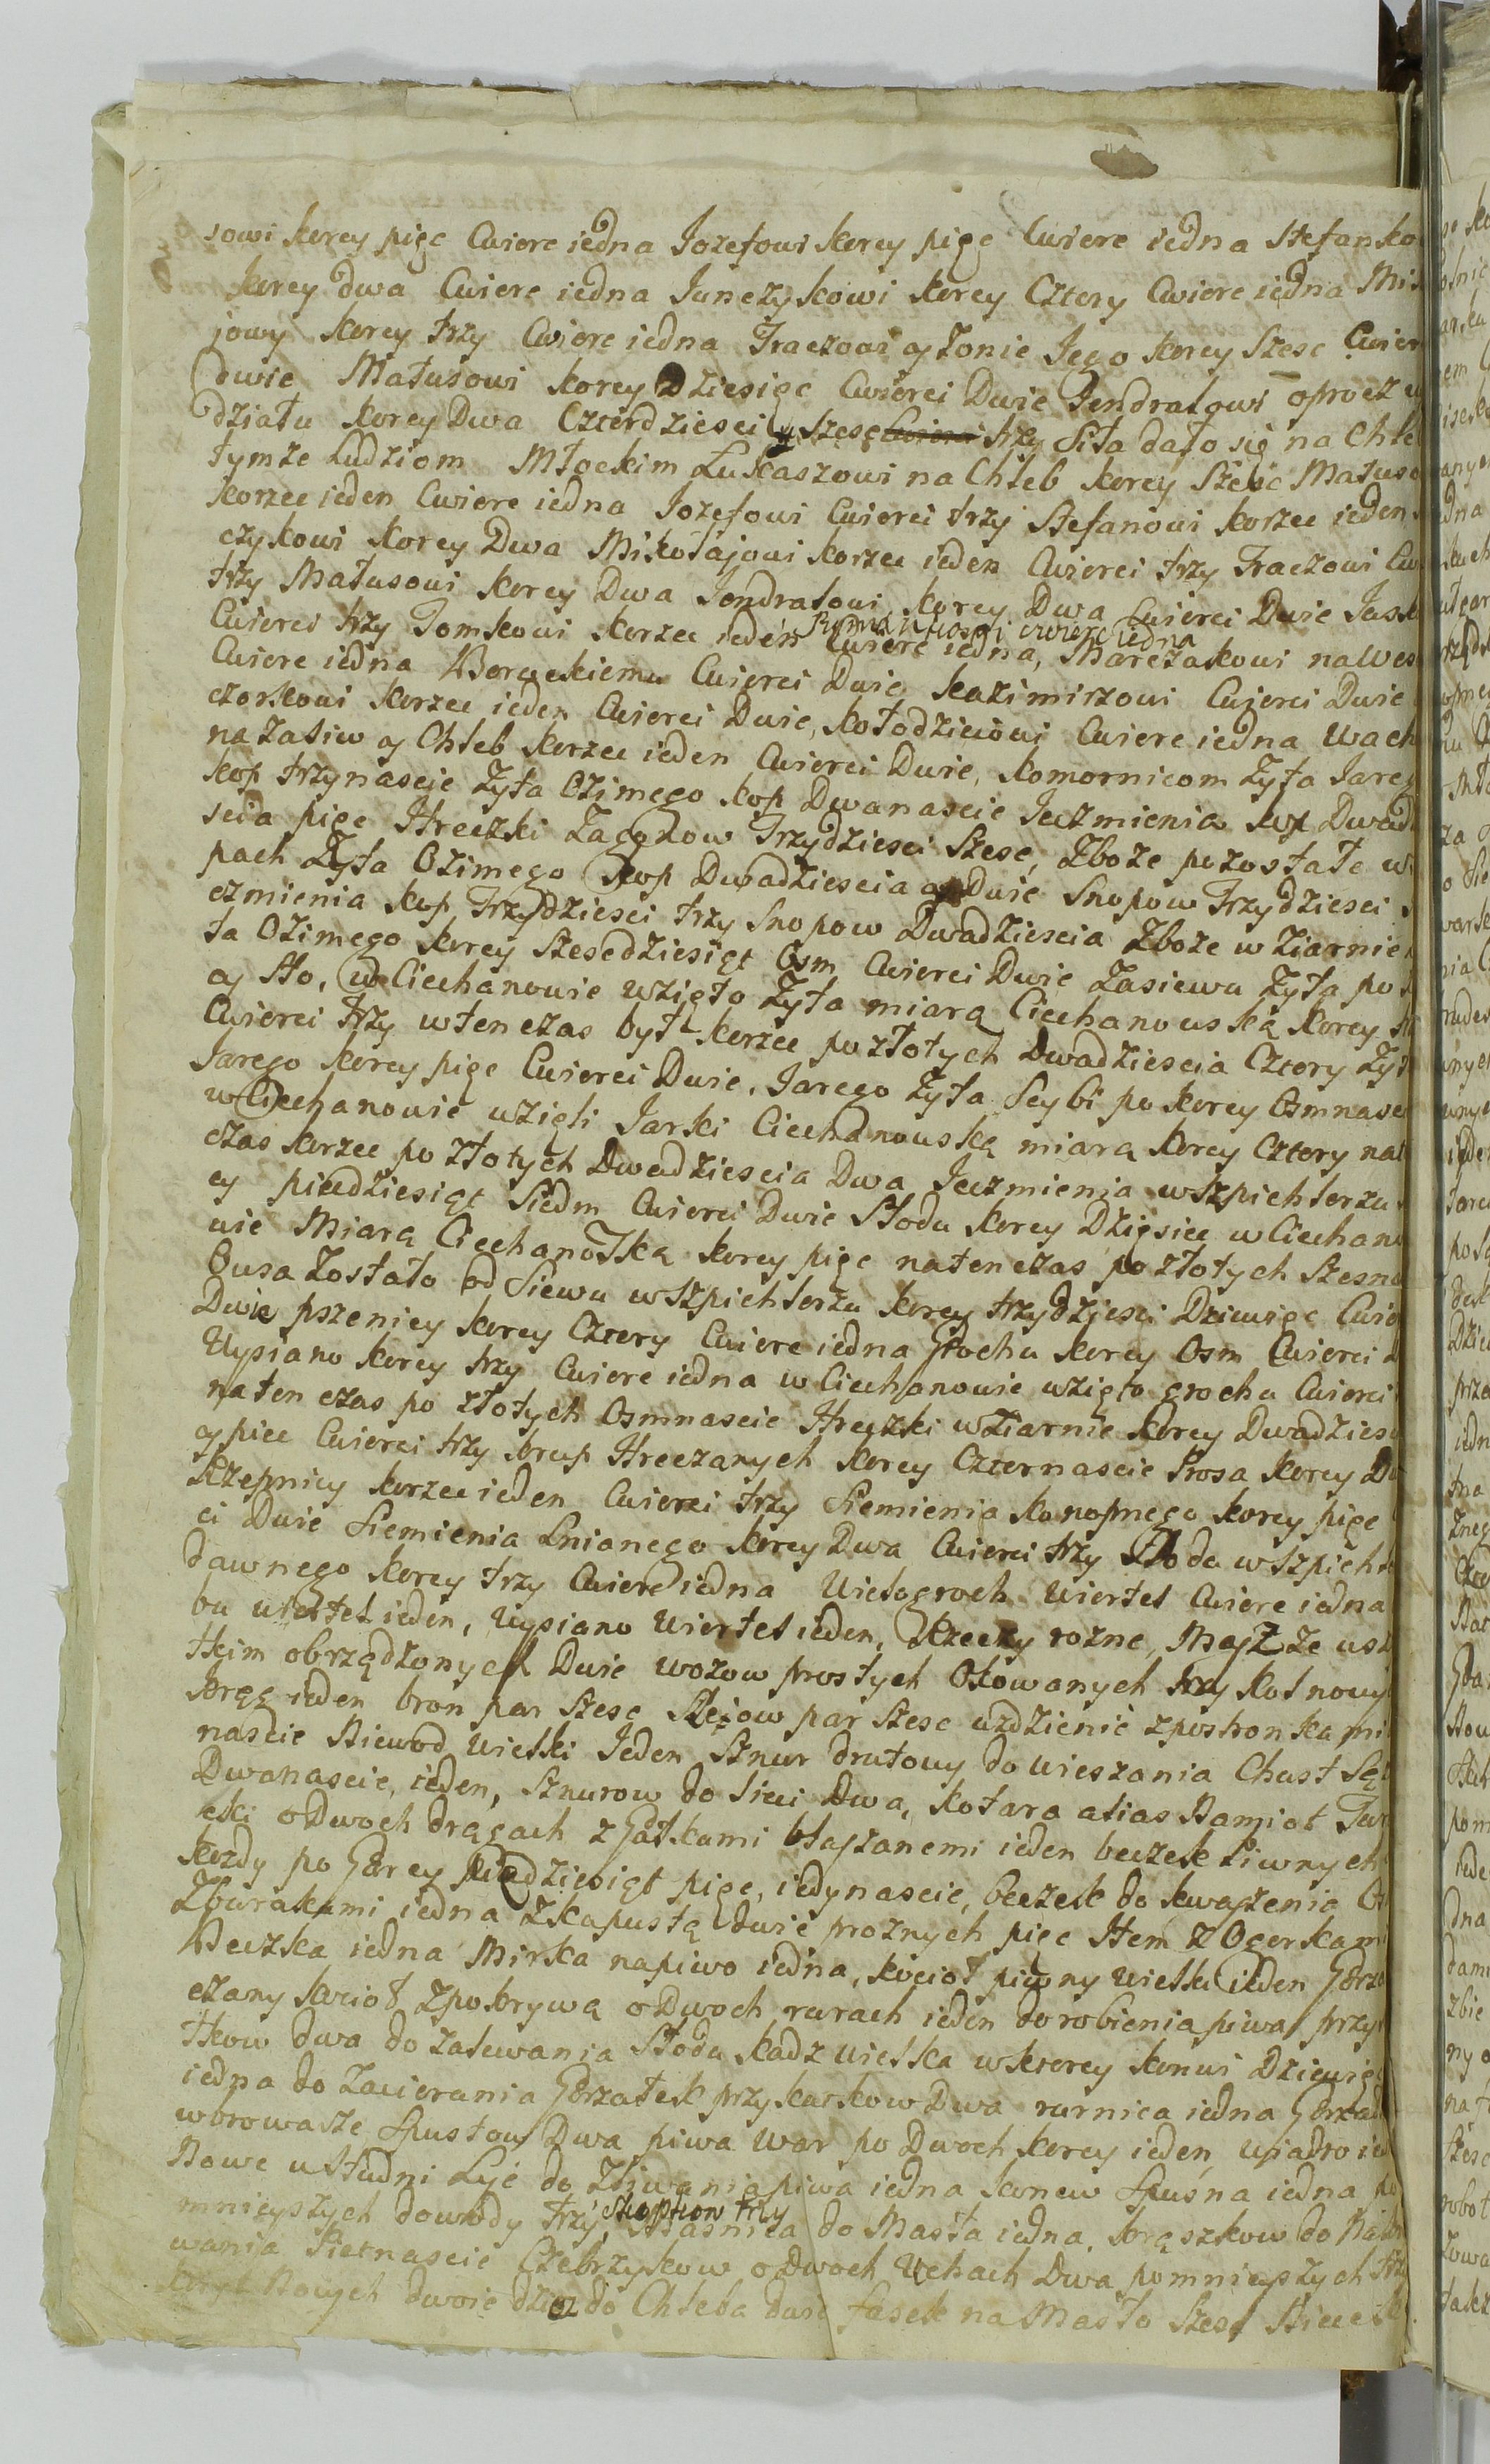 sowi korcy pięc Cwierc iedna Jozefowi korcy pięc Cwierc iedna Stefanko
korcy dwa Cwierc iedna Janczykowi korcy Cztery Cwierc iedna Mi
jowy korcy trzy Cwierc iedna Traczowi y Zonie Jego korcy Szesc Cwier
dwie Matusowi korcy Dziesięc Cwierci Dwie Jendratowi oprocz
działu korcy Dwa Czterdziesci y szesc Cwierci trzy Siła dało się na Chle
tymze Ludziom Młockim Łukaszowi na Chleb korcy Szesc Matuso
korzec ieden Cwierc iedna Jozefowi Cwierci trzy Stefanowi korzec ieden
czykowi korcy Dwa Mikołajowi korzec ieden Cwierci trzy Traczowi Cw
trzy Matusowi korcy Dwa Jondratowi korcy Dwa Cwierci Dwie Jask
cwierc iedna
Cwierci trzy Tomkowi korzec ieden Cwierc iedna, Marczakowi na Wes
Cwierc iedna Boruckiemu Cwierci Dwie kazimirzowi Cwierci Dwie
czorkowi korzec ieden Cwierci Dwie, kołodzieiowi Cwierc iedna Wach
na Zasiew y Chleb korzec ieden Cwierci Dwie, komornicom Zyta Jare
kop trzynascje Zyta Ozimego kop Dwanascie Jeczmienia kop Dwad
scia pięc Hreczki Zagonow Trzydziesci Szesc, Zboze pozostałe w
pach Zyta Ozimego kop Dwadziescia y Dwie Snopow Trzydziesci
czmienia kop Trzydziesci trzy Snopow Dwadziescia Zboze w Ziarnie
ta Ozimego korcy Szescdziesiąt Osm Cwierci Dwie Zasiewu Zyta po
y Sto, w Ciechanowie wzięto Zyta miarą Ciechanowską korcy
Cwierci trzy wten czas był korzec po złotych Dwadziescia Cztery Zy
Jarego korcy pięc Cwierci Dwie, Jarego Zyta Seybi po korcy Osmnasc
w Ciechanowie wzięli Jarki Ciechanowską miarą korcy Cztery nat
czas korzec po złotych Dwadziescia Dwa Jeczmienia w Szpichlerzu
cy piedziesiąt Siedm Cwierci Dwie Słodu korcy Dzięsiec w Ciechan
wie Miarą Ciechanoską korcy pięc natenczas po złotych Szesna
Owsa Zostało od Siewu w Szpichlerzu korcy trzydziesci Dziewięc Cwie
Dwie pszenicy korcy Cztery Cwierc iedna Grochu korcy Osm Cwierci
Wysiano korcy trzy Cwierc iedna w Ciechanowie wzięto grochu Cwierci
naten czas po złotych Osmnascie Hreczki w Ziarnie korcy Dwadziesc
y piec Cwierci trzy krup Hreczanych korcy Czternascie Prosa korcy D
Rzepnicy korzec ieden Cwierci trzy Siemienia konopnego korcy pięc
ci Dwie Siemienia Lnianego korcy Dwa Cwierci trzy Słodu w Szpichl
dawnego korcy trzy Cwierc iedna Wielogroch Wiertel Cwierc iedna
bu wiertel ieden, Wysiano Wiertel ieden, Rzeczy rozne, Maz ze wsz
tkim obrządzonych Dwie wozow prostych Okowanych trzy kolnowy
krąg ieden bron par Szesc Slejow par Szesc uzdzienic z postronkami
nascie Niewod Wielki Jeden Sznur drutowy do Wieszania Chust Są
Dwanascie, ieden, Sznurow do Sieci Dwa, kotara alias Namiot Tur
cki o Dwoch drągach z Gałkami blaszanemi ieden beczek Piwnych
kozdy po Garcy Piedziesiąt pięc, iedynascie, beczek do kwaszenia
Zburakami iedna Zkapustą dwie proznych pięc Item z Ogorkami
Beczka iedna Mirka napiwo iedna, kocioł piwny wielki ieden Gorza
czany kociot Zpokrywą o Dwoch rurach ieden do robienia piwa przy
tkow dwa do zalewania Słodu kadz wielka w ktorey konwi Dziewięc
iedna do Zacierania Gorzałek przykarkow Dwa rurnica iedna Gorzał
w browarze Spustow Dwa piwa War po Dwoch korcy ieden, wiadro ie
Nowe u Studni Łyć do Zliwania piwa iedna konew Spusna iedna po
skopkow trzy
mnieyszych do wody trzy, Masnica do Masła iedna, krąszkow do Na
wania Pietnascie Czebrzykow o Dwoch Uchach Dwa pomnieyszych trzy
Nowych dwoie dziez do Chleba dwie fasek na Masło Szesc